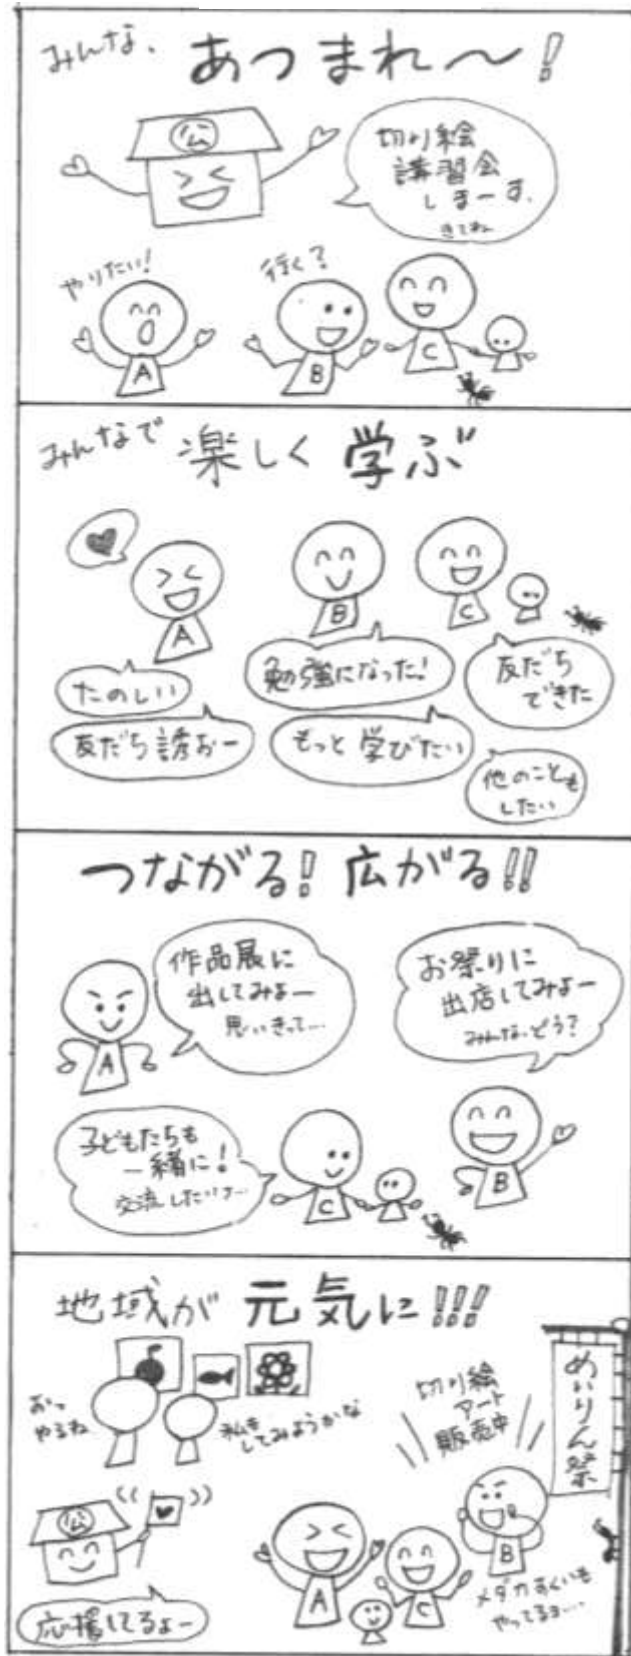 みんな、あつまれ～！
公
切り絵
講習会
しまーす。
きてね
やりたい！
行く？
A
B
C
みんなで 楽しく 学ぶ
A
B
C
たのしい
友だち誘おー
勉強になった！
もっと学びたい
友だち
できた
他のことも
したい
つながる！広がる!!
作品展に
出してみよー
思いきって…
A
お祭りに
出店してみよー
みんな、どう？
B
子どもたちも
一緒に！
交流したいナ…
C
地域が 元気に!!!
おっ
やるね
私も
してみようかな
切り絵
アート
販売中
めいりん祭
公
応援してるよー
A
C
B
メダカすくいも
やってるョ…